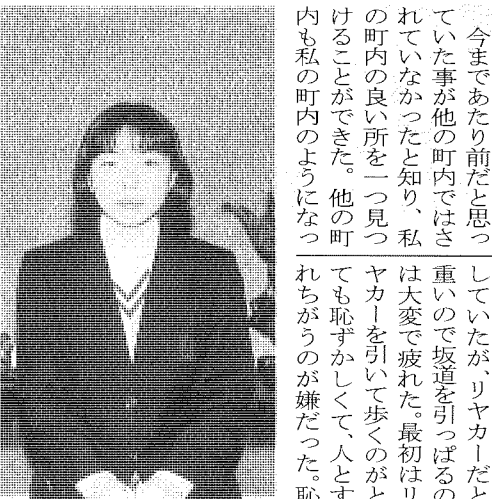 今まであたり前だと思っ
ていた事が他の町内ではさ
れていなかったと知り、私
の町内の良い所を一つ見つ
けることができた。他の町
内も私の町内のようになっ
していたが、リヤカーだと
重いので坂道を引っぱるの
は大変で疲れた。最初はリ
ヤカーを引いて歩くのがと
ても恥ずかしくて、人とす
れちがうのが嫌だった。恥